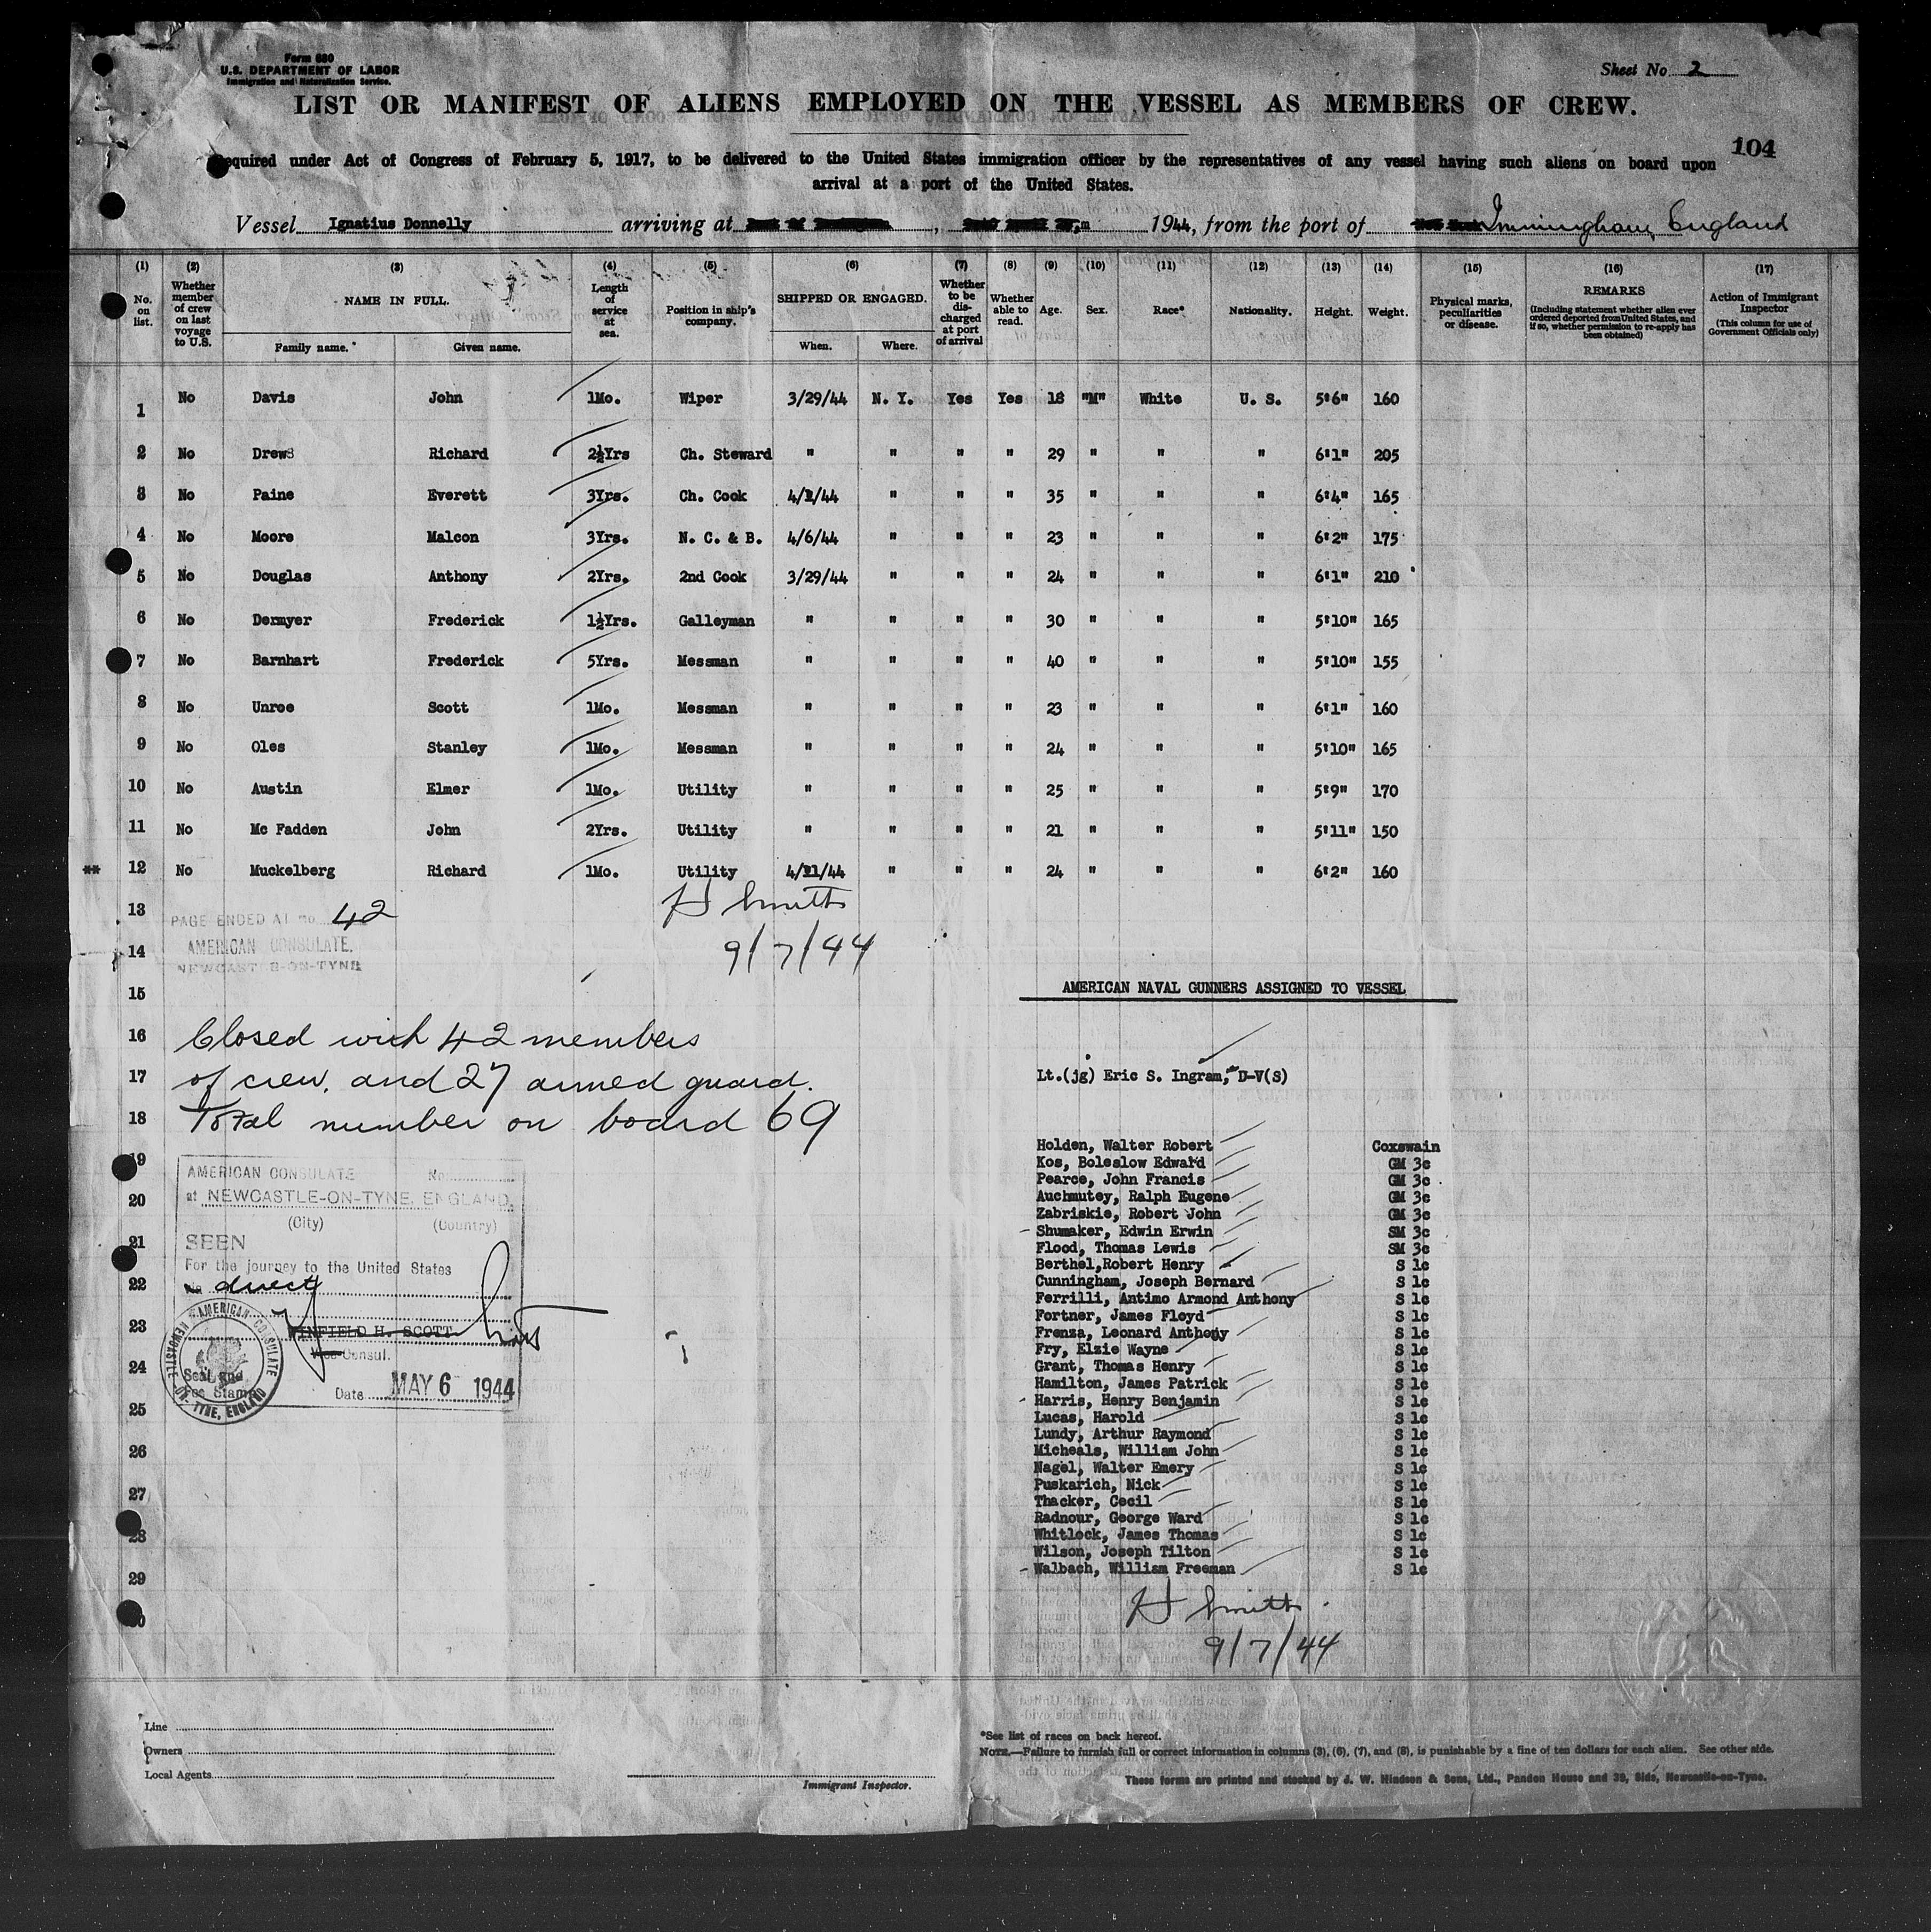 Form 680
U.S. DEPARTMENT OF LABOR
Immigration and Naturalization Service.
Sheet No 2
LIST OR MANIFEST OF ALIENS EMPLOYED ON THE VESSEL AS MEMBERS OF CREW.
104
Required under Act of Congress of February 5, 1917, to be delivered to the United States immigration officer by the representatives of any vessel having such aliens on board upon
arrival at a port of the United States.
Vessel Ignatius Donnelly arriving at , 1944, from the port of Immingham, England
(1) (2) (3) (4) (5) (6) (7) (8) (9) (10) (11) (12) (13) (14) (15) (16) (17)
No. on list. Whether member of crew on last voyage to U.S. NAME IN FULL. Family name. Given name. Length of service at sea. Position in ship's company. SHIPPED OR ENGAGED. When. Where. Whether to be discharged at port of arrival Whether able to read. Age. Sex. Race* Nationality. Height. Weight. Physical marks, peculiarities or disease. REMARKS (Including statement whether alien ever ordered deported from United States, and if so, whether permission to re-apply has been obtained) Action of Immigrant Inspector (This column for use of Government Officials only)
1 No Davis John 1Mo. Wiper 3/29/44 N. Y. Yes Yes 18 "M" White U. S. 5'6" 160
2 No Drews Richard 2½Yrs Ch. Steward " " " " 29 " " " 6'1" 205
3 No Paine Everett 3Yrs. Ch. Cook 4/2/44 " " " 35 " " " 6'4" 165
4 No Moore Malcon 3Yrs. N. C. & B. 4/6/44 " " " 23 " " " 6'2" 175
5 No Douglas Anthony 2Yrs. 2nd Cook 3/29/44 " " " 24 " " " 6'1" 210
6 No Dermyer Frederick 1½Yrs. Galleyman " " " " 30 " " " 5'10" 165
7 No Barnhart Frederick 5Yrs. Messman " " " " 40 " " " 5'10" 155
8 No Unroe Scott 1Mo. Messman " " " " 23 " " " 6'1" 160
9 No Oles Stanley 1Mo. Messman " " " " 24 " " " 5'10" 165
10 No Austin Elmer 1Mo. Utility " " " " 25 " " " 5'9" 170
11 No Mc Fadden John 2Yrs. Utility " " " " 21 " " " 5'11" 150
** 12 No Muckelberg Richard 1Mo. Utility 4/21/44 " " " 24 " " " 6'2" 160
13
PAGE ENDED AT No. 42
AMERICAN CONSULATE.
NEWCASTLE-ON-TYNE
H Smith
9/7/44
14
15
AMERICAN NAVAL GUNNERS ASSIGNED TO VESSEL
16 Closed with 42 members
17 of crew, and 27 armed guard.
18 Total number on board 69
Lt.(jg) Eric S. Ingram, D-V(S)
Holden, Walter Robert Coxswain
Kos, Boleslow Edward GM 3c
Pearce, John Francis GM 3c
Auchmutey, Ralph Eugene GM 3c
Zabriskie, Robert John GM 3c
Shumaker, Edwin Erwin SM 3c
Flood, Thomas Lewis SM 3c
Berthel,Robert Henry S 1c
Cunningham, Joseph Bernard S 1c
Ferrilli, Antimo Armond Anthony S 1c
Fortner, James Floyd S 1c
Frenza, Leonard Anthony S 1c
Fry, Elzie Wayne S 1c
Grant, Thomas Henry S 1c
Hamilton, James Patrick S 1c
Harris, Henry Benjamin S 1c
Lucas, Harold S 1c
Lundy, Arthur Raymond S 1c
Micheals, William John S 1c
Nagel, Walter Emery S 1c
Puskarich, Nick S 1c
Thacker, Cecil S 1c
Radnour, George Ward S 1c
Whitlock, James Thomas S 1c
Wilson, Joseph Tilton S 1c
Walbach, William Freeman S 1c
H Smith
9/7/44
19
20
21
22
23
24
25
26
27
28
29
30
AMERICAN CONSULATE No.
at NEWCASTLE-ON-TYNE, ENGLAND.
(City) (Country)
SEEN
For the journey to the United States
via direct
WINFIELD H. SCOTT
Vice Consul.
Seal and
Fee Stamp
Date MAY 6 1944
AMERICAN CONSULATE NEWCASTLE-ON-TYNE, ENGLAND
Line
Owners
Local Agents
Immigrant Inspector.
*See list of races on back hereof.
NOTE.—Failure to furnish full or correct information in columns (3), (6), (7), and (8), is punishable by a fine of ten dollars for each alien. See other side.
These forms are printed and stocked by J. W. Hindson & Sons, Ltd., Pandon House and 39, Side, Newcastle-on-Tyne.